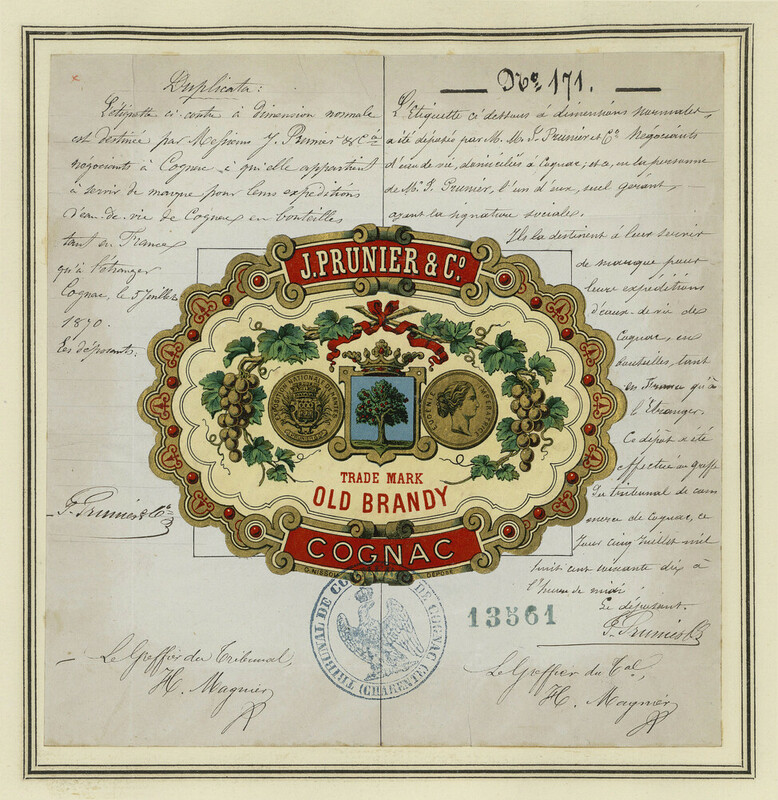 Duplicata :
L'étiquette ci contre à dimension normale
est destinée par Messieurs J. Prunier & Cie
négociants à Cognac à qui elle appartient
à servir de marque pour leurs expéditions
d'eau-de-vie de Cognac en bouteilles
tant en France
qu'à l'étranger
Cognac, le 5 Juillet
1870.
Les déposants.
J. Prunier & Cie
Le Greffier du Tribunal,
H. Magnier
No. 171.
L'Etiquette ci dessous à dimensions normales,
a été déposée par M. M. J. Prunier et Cie Négociants
d'eau de vie, domiciliés à Cognac; et a, en la personne
de Mr. J. Prunier, l'un d'eux, seul gérant,
ayant la signature sociales.
Ils la destinent à leur servir
de marque pour
leurs expéditions
d'eaux de vie de
Cognac, en
bouteilles, tant
en France qu'à
l'Etranger.
Ce dépôt a été
effectué au greffe
du tribunal de com
merce de Cognac, ce
Jour cinq Juillet mil
huit cent soixante dix à
l'heure de midi
Le déposant.
J. Prunier & Cie
Le Greffier du Tal,
H. Magnier
J. PRUNIER & Co.
EUGENIE IMPERATRICE
TRADE MARK
OLD BRANDY
COGNAC
G. NISSOU
DÉPOSÉ
TRIBUNAL DE COMMERCE DE COGNAC (CHARENTE)
13561